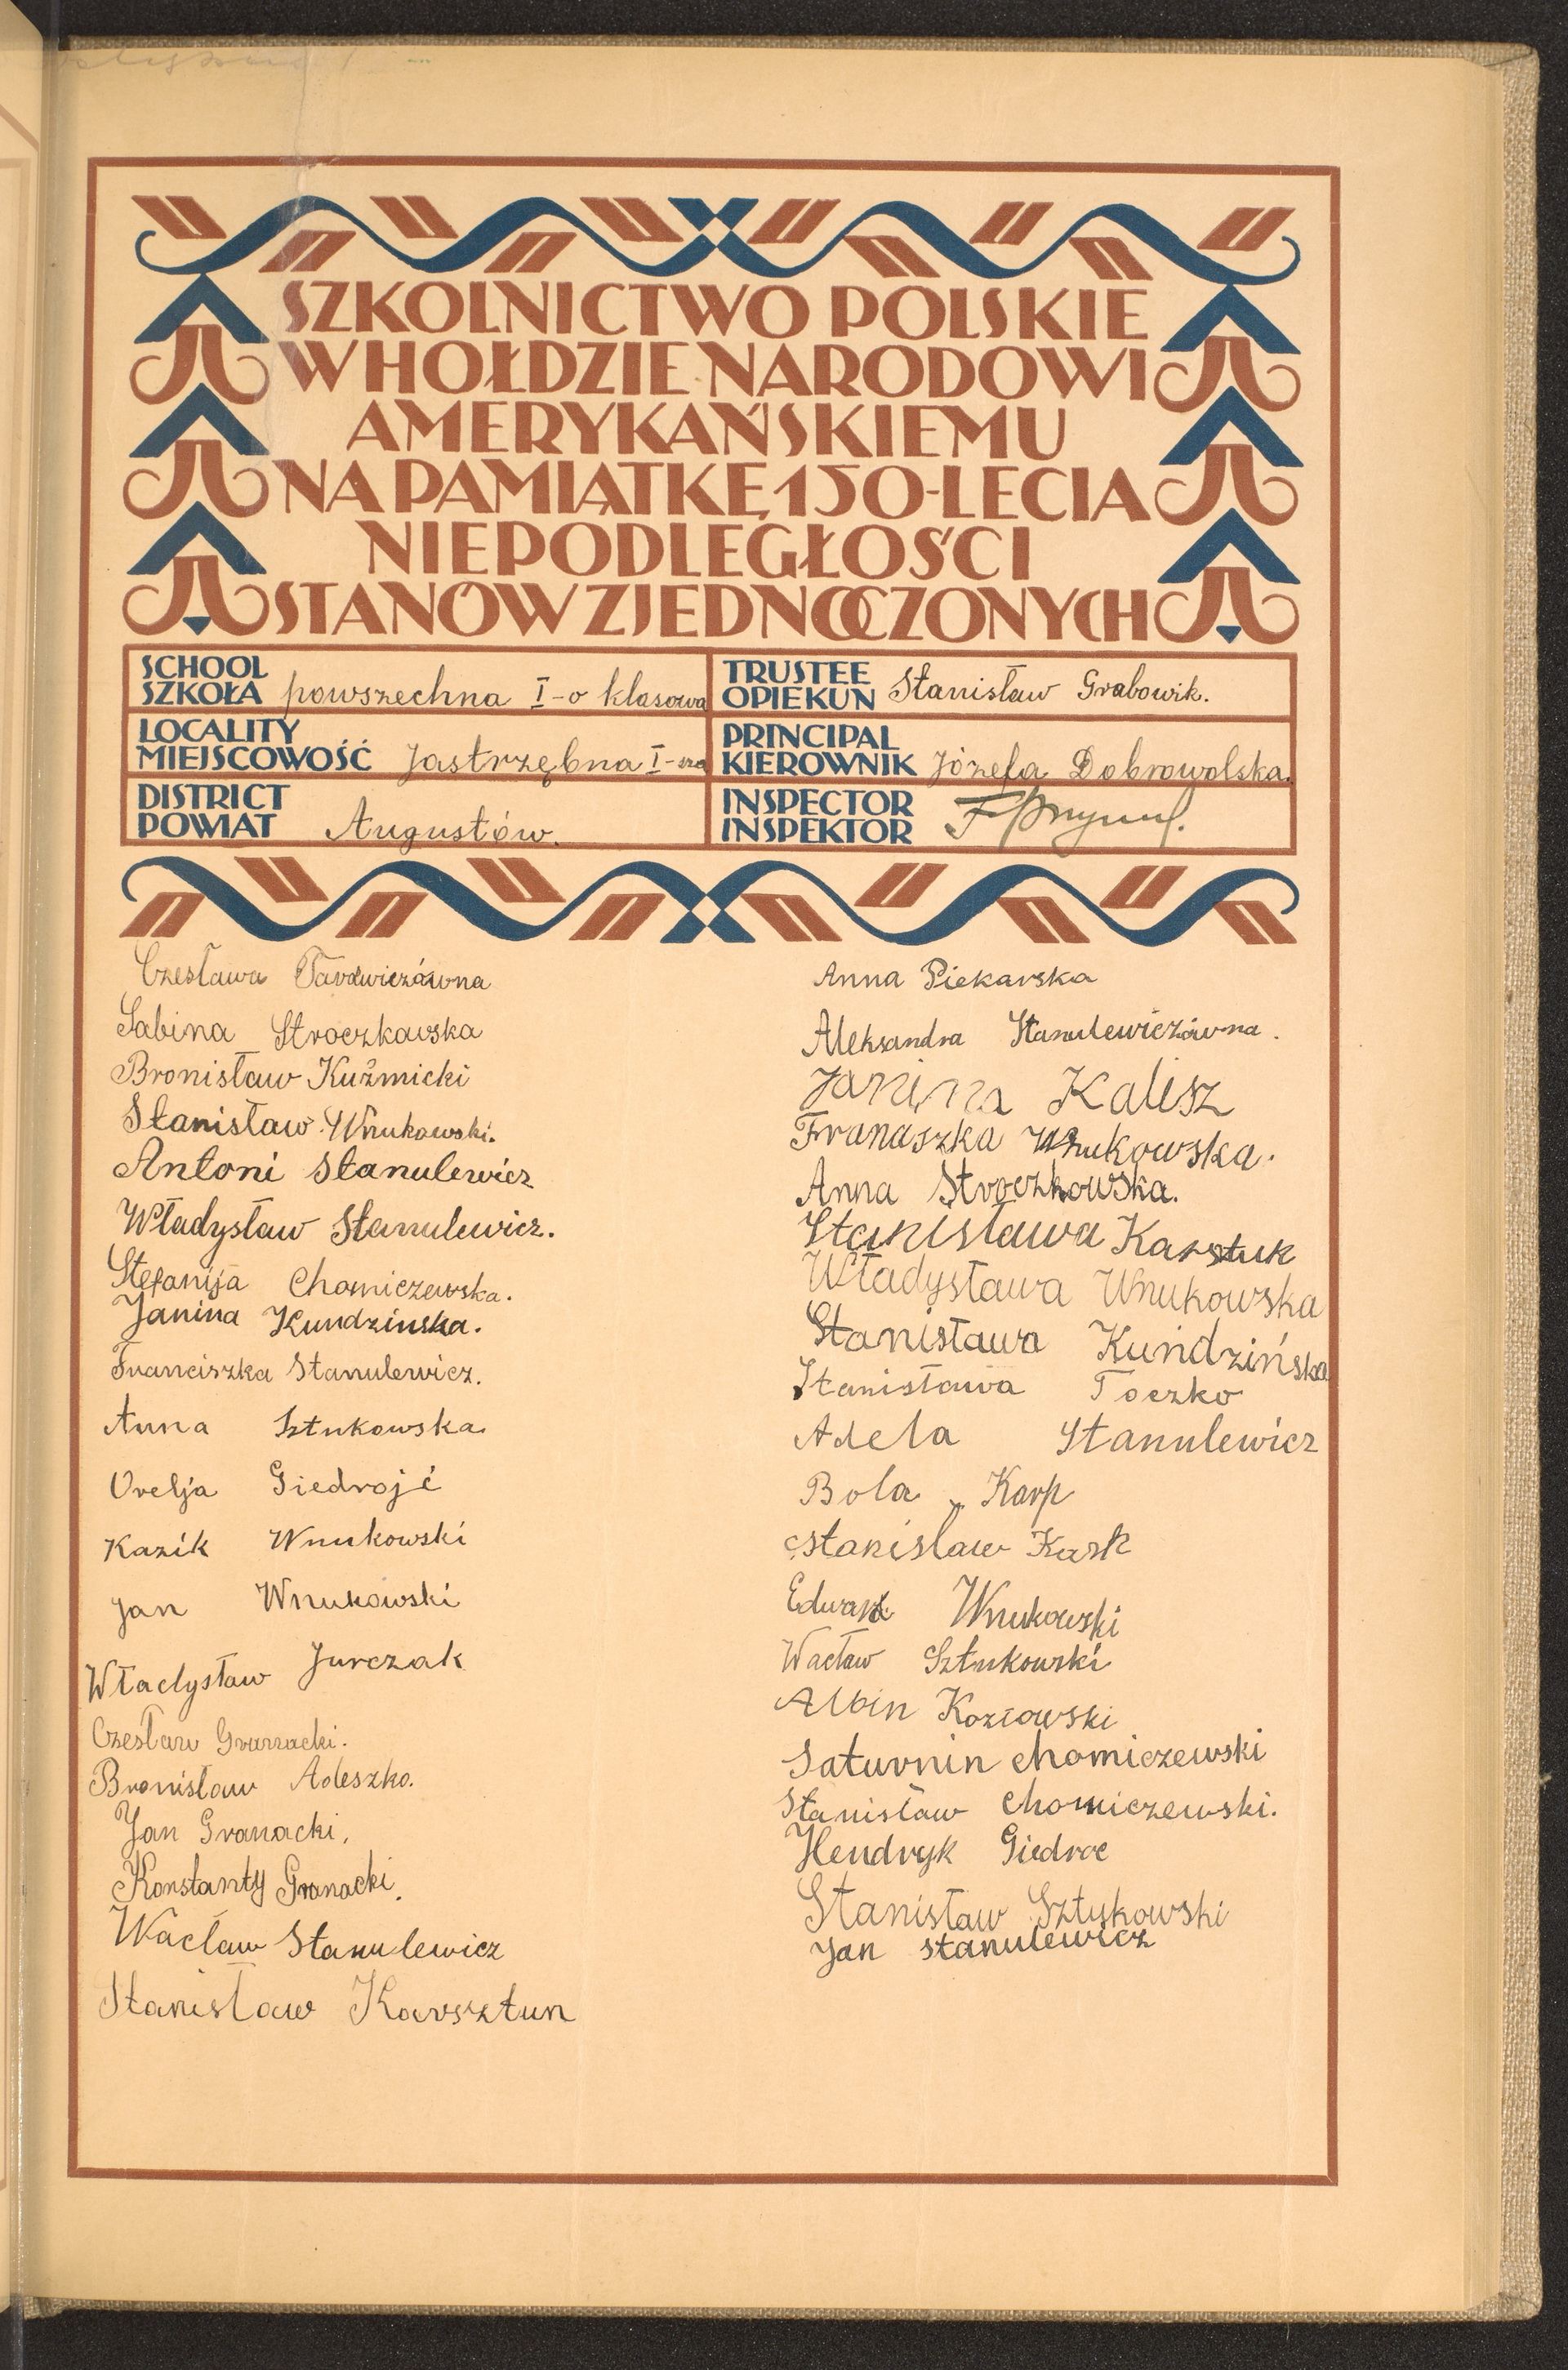 SZKOLNICTWO POLSKIE
W HOŁDZIE NARODOWI
AMERYKAŃSKIEMU
NA PAMIĄTKĘ 150-LECIA
NIEPODLEGŁOŚCI
STANÓW ZJEDNOCZONYCH
SCHOOL
SZKOŁA powszechna I-o klasowa
TRUSTEE
OPIEKUN Stanisław Grabowik.
LOCALITY
MIEJSCOWOŚĆ Jastrzębna I-sza
PRINCIPAL
KIEROWNIK Józefa Dobrowolska.
DISTRICT
POWIAT Augustów.
INSPECTOR
INSPEKTOR
Czesława
Sabina Stroczkowska
Bronisław Kuźmicki
Stanisław Wnukowski.
Antoni Stanulewicz
Władysław Stanulewicz.
Stefanija Chomiczewska.
Janina Kundzinska.
Franciszka Stanulewicz.
Anna Sztukowska
Orelja Giedrojć
Kazik Wnukowski
Jan Wnukowski
Władysław Jurczak
Czesław
Bronisław Adeszko.
Jan Granacki.
Konstanty Granacki.
Wacław Stanulewicz
Stanisław Karsztun
Anna Piekarska
Aleksandra Stanulewiczówna.
Janina Kalisz
Franciszka Wnukowska.
Anna Stroczkowska.
Stanisława
Władysława Wnukowska
Stanisława Kundzińska
Stanisława Toczko
Adela Stanulewicz
Bola Karp
Stanisław
Edward Wnukowski
Wacław Sztukowski
Albin Kozłowski
Saturnin Chomiczewski
Stanisław Chomiczewski.
Hendryk Giedroc
Stanisław Sztukowski
Jan Stanulewicz